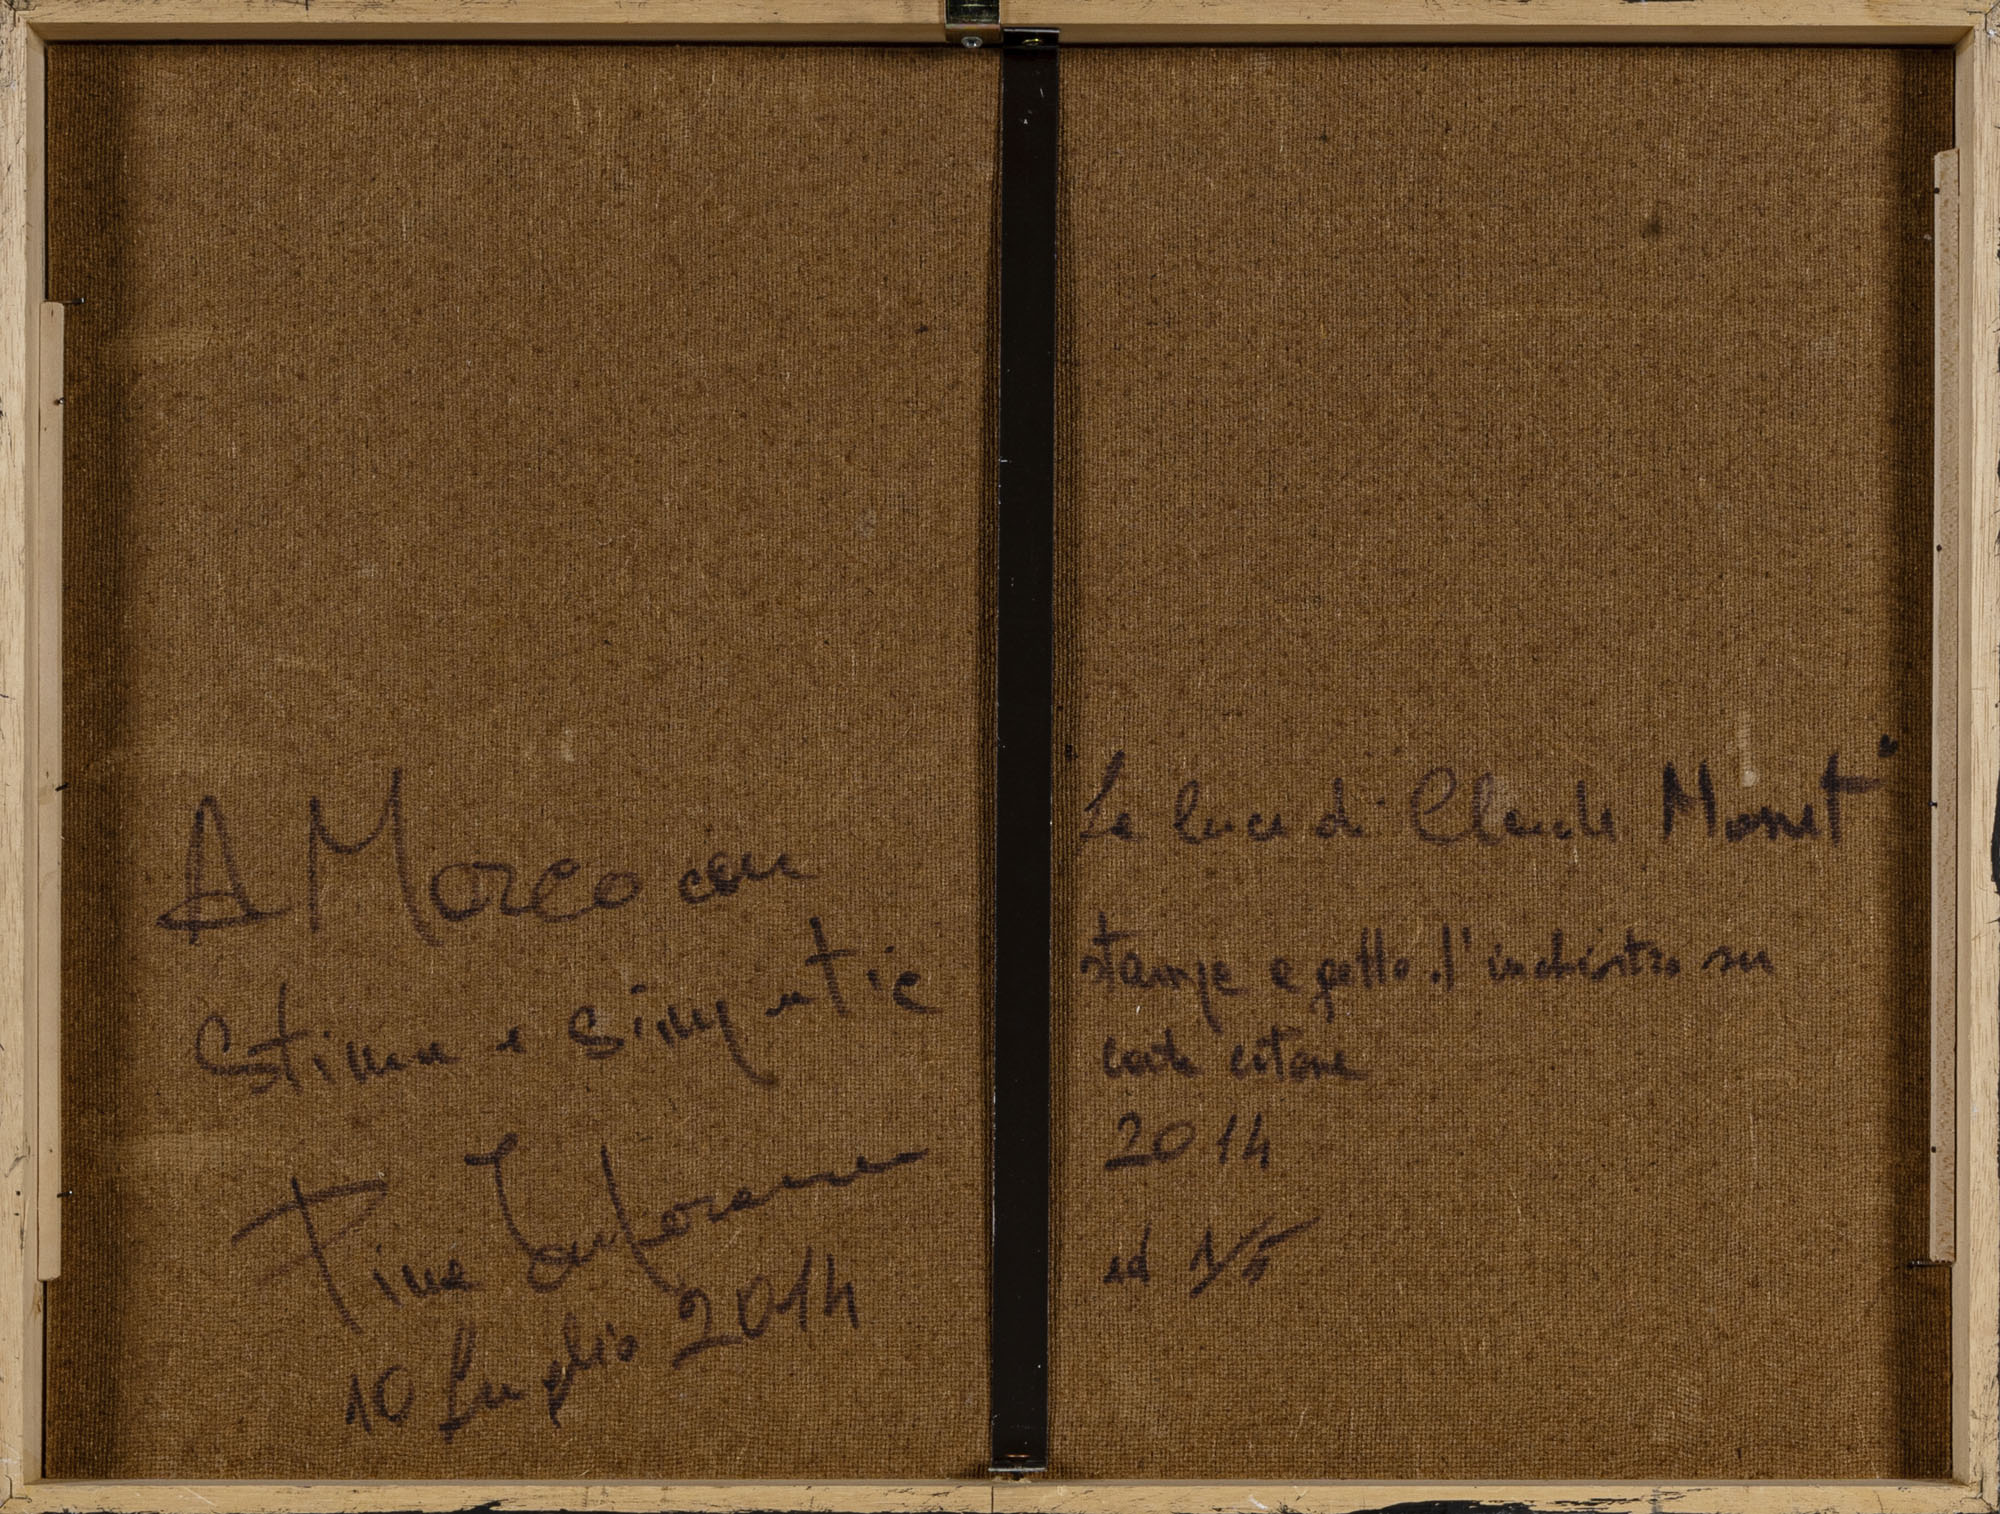 A Marco con
stima e simpatia
Pina
10 Luglio 2014
"La luce di Claude Monet"
stampa a getto d'inchiostro su
carta cotone
2014
ed 1/5